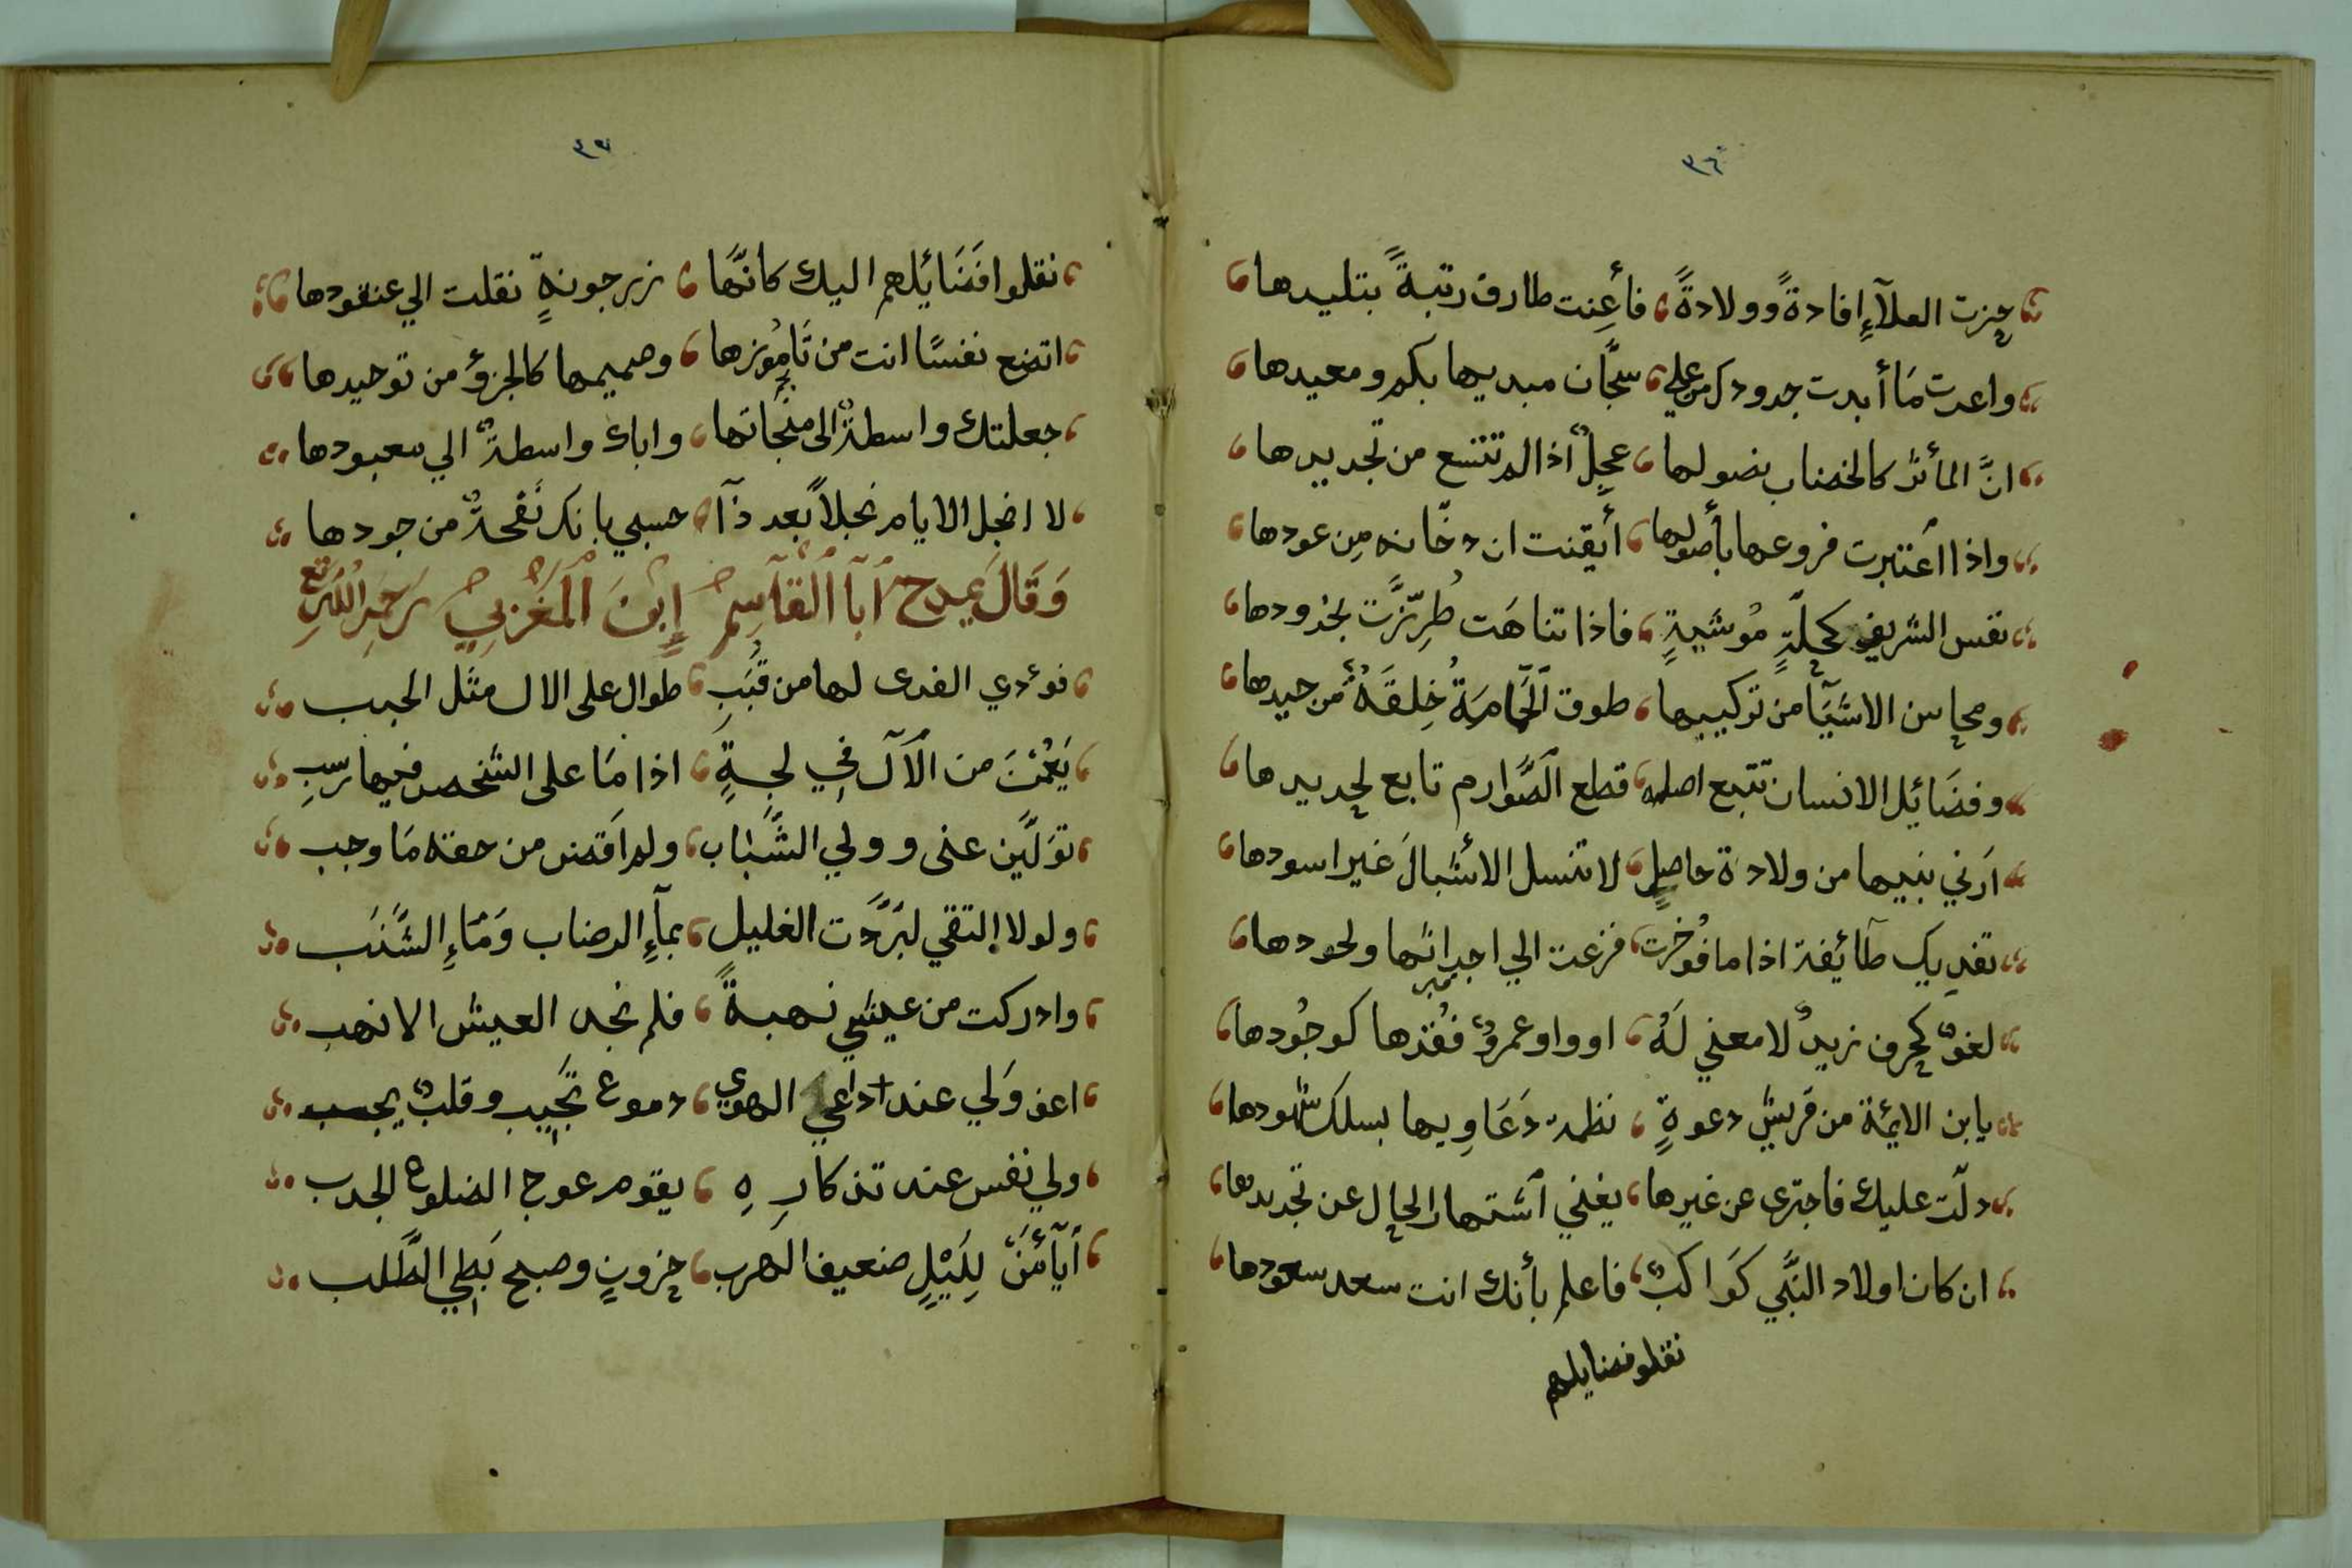 ٣٦
حزت العلآءِ إفادةً وولادةً فأعِنت طارف رتبةً بتليدها
واعدت مَا أبدت جدودك من علي سجّان مبديها بكم ومعيدها
انَّ المأثر كالخضاب نصولها عجلٌ اذا لم تتسع من تجديدها
واذا اعتبرت فروعها بأصولها أيقنت ان دخّانه مِن عودها
نفس الشريف كحلّةٍ مُوشيةٍ فاذا تناهَت طُرِّزَت بخدودها
ومحاسن الاشيَآ من تركيبها طوق الحَمامَةُ خِلقَةٌ من جيدها
وفضَائِل الانسان تتبع اصله قطع الصَّوارم تابع لحديدها
اَرني بنيها من ولادة حاصلٍ لا تنسل الأشبالَ غير اسودها
تفديك طآئيفة اذا ما فُوخرت فزعت الي اجداثها ولحودها
لغوٌ كحرف زيدٌ لا معني لَهُ او واو عمروٌ ففُقدها كوجُودها
يابن الايمّة من قريش دعوةٍ نظمت دَعَاوِيها بسلك شهودها
دلّت عليك فاجتزى عن غيرها يغني اَشتهار الحال عن تجديدها
ان كان اولاد النَّبَي كوَاكبٌ فاعلم بأنك انت سعد سعودها
نقلو فضايلهم
٣٧
نقلوا فَضَائِلهم اليك كانّهَا زرجونةٍ نقلت الي عنقودها
اتضع نفسًا انت من تَامُورها وصميمها كالجزؤ من توحيدها
جعلتك واسطةٌ الى منجَاتها واباك واسطةٌ الي معبودها
لا ابخل الايام نجلاً بعد ذآ حسبي بانك نَفحةٌ من جودها
وَقَالَ يمدح اَبَا القَاسِم إِبنَ المَغرَبِي رَحمِهُ اللهُ تع
فوءدي الفدى لها من قُبَبِ طوال على الال مثل الحبب
يَعُمْنَ من الآل في لجةٍ اذا مَا على الشخص فيها رسبِ
توَلَّين عنى وولي الشَّبَاب ولم اَقض من حقه مَا وجب
ولولا إلتقي لبَرَّدت الغليل بمآءِ الرضاب وَمَاءِ الشَّنَب
وادركت من عيشي نهبةً فلم نجد العيش الا نهب
اعف وَلي عند داعي الهوي دموع تجَيب وقلبٌ يجب
ولي نفس عند تذكارِهِ يقوم عوج الضلوع الحدب
أيآمَنَ لِلَيْلٍ ضعيف الهرب حزونٍ وصبح بَطِي الطَّلب